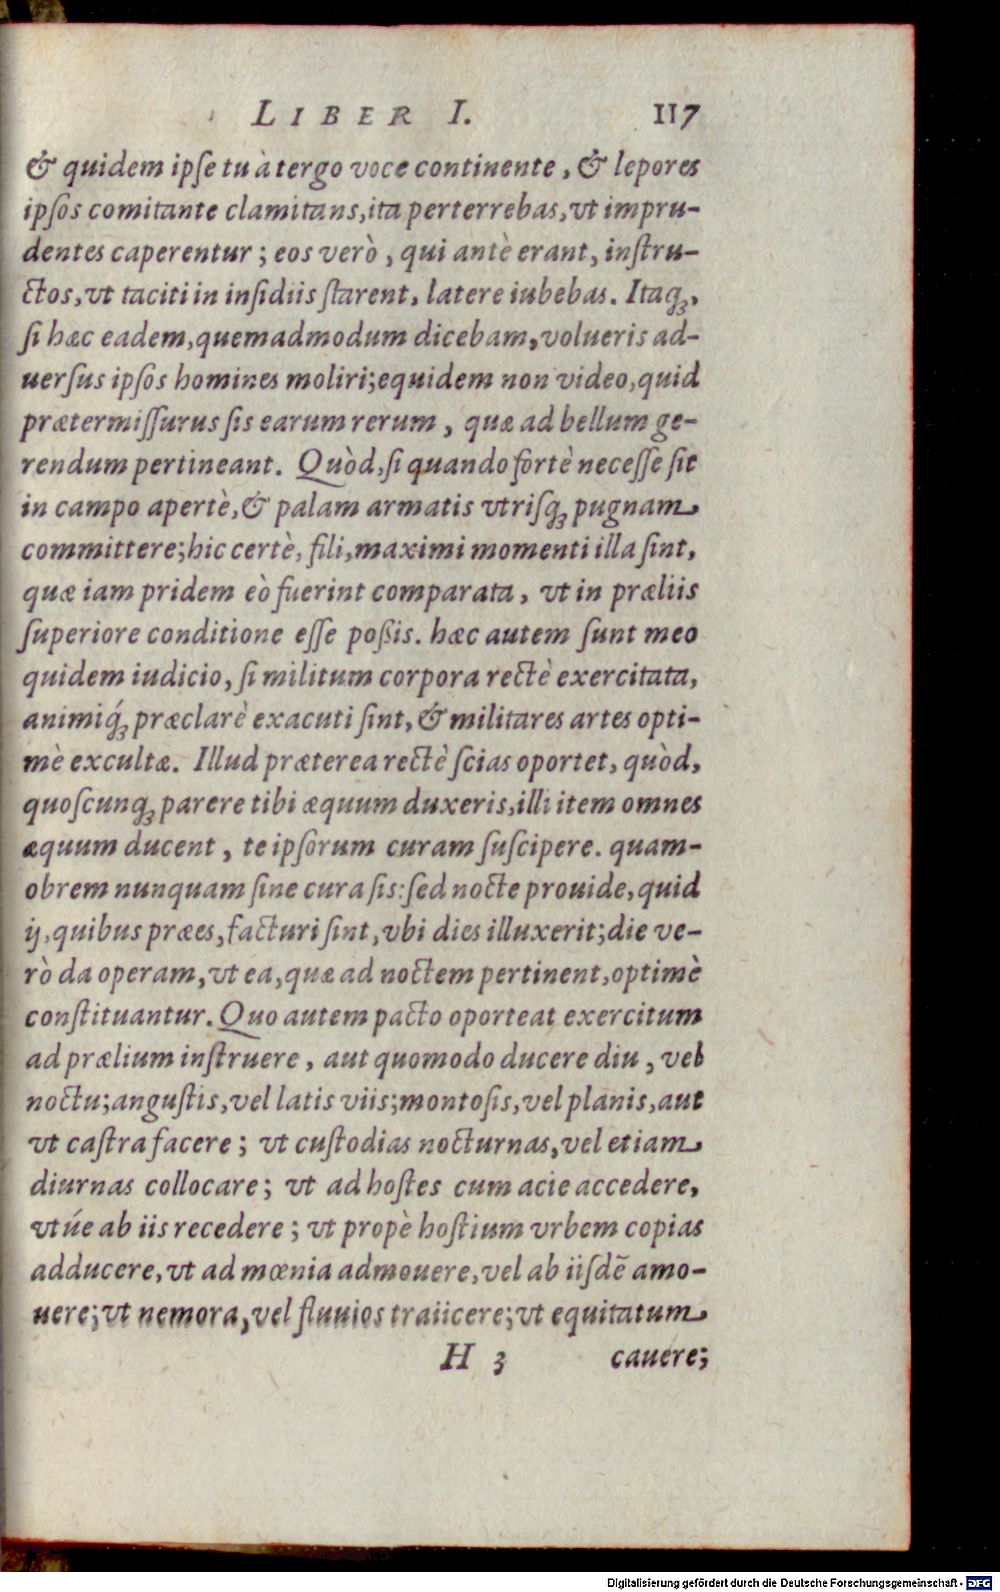 LIBER I. 117
& quidem ipſe tu à tergo voce continente, & lepores
ipſos comitante clamitans, ita perterrebas, vt impru-
dentes caperentur; eos verò, qui antè erant, inſtru-
ctos, vt taciti in inſidiis ſtarent, latere iubebas. Itaq́ꝫ,
ſi hæc eadem, quemadmodum dicebam, volueris ad-
uerſus ipſos homines moliri; equidem non video, quid
prætermiſſurus ſis earum rerum, quæ ad bellum ge-
rendum pertineant. Quòd, ſi quando fortè neceſſe ſit
in campo apertè, & palam armatis vtriſqꝫ pugnam
committere; hic certè, fili, maximi momenti illa ſint,
quæ iam pridem eò fuerint comparata, vt in præliis
ſuperiore conditione eſſe poßis. hæc autem ſunt meo
quidem iudicio, ſi militum corpora rectè exercitata,
animiq́ꝫ præclarè exacuti ſint, & militares artes opti-
mè excultæ. Illud præterea rectè ſcias oportet, quòd,
quoſcunqꝫ parere tibi æquum duxeris, illi item omnes
æquum ducent, te ipſorum curam ſuſcipere. quam-
obrem nunquam ſine cura ſis: ſed nocte prouide, quid
ij, quibus præes, facturi ſint, vbi dies illuxerit; die ve-
rò da operam, vt ea, quæ ad noctem pertinent, optimè
conſtituantur. Quo autem pacto oporteat exercitum
ad prælium inſtruere, aut quomodo ducere diu, vel
noctu; anguſtis, vel latis viis; montoſis, vel planis, aut
vt caſtra facere; vt cuſtodias nocturnas, vel etiam
diurnas collocare; vt ad hoſtes cum acie accedere,
vtúe ab iis recedere; vt propè hoſtium vrbem copias
adducere, vt ad mœnia admouere, vel ab iiſdē amo-
uere; vt nemora, vel fluuios traiicere; vt equitatum
H 3 cauere;
Digitalisierung gefördert durch die Deutsche Forschungsgemeinschaft - DFG